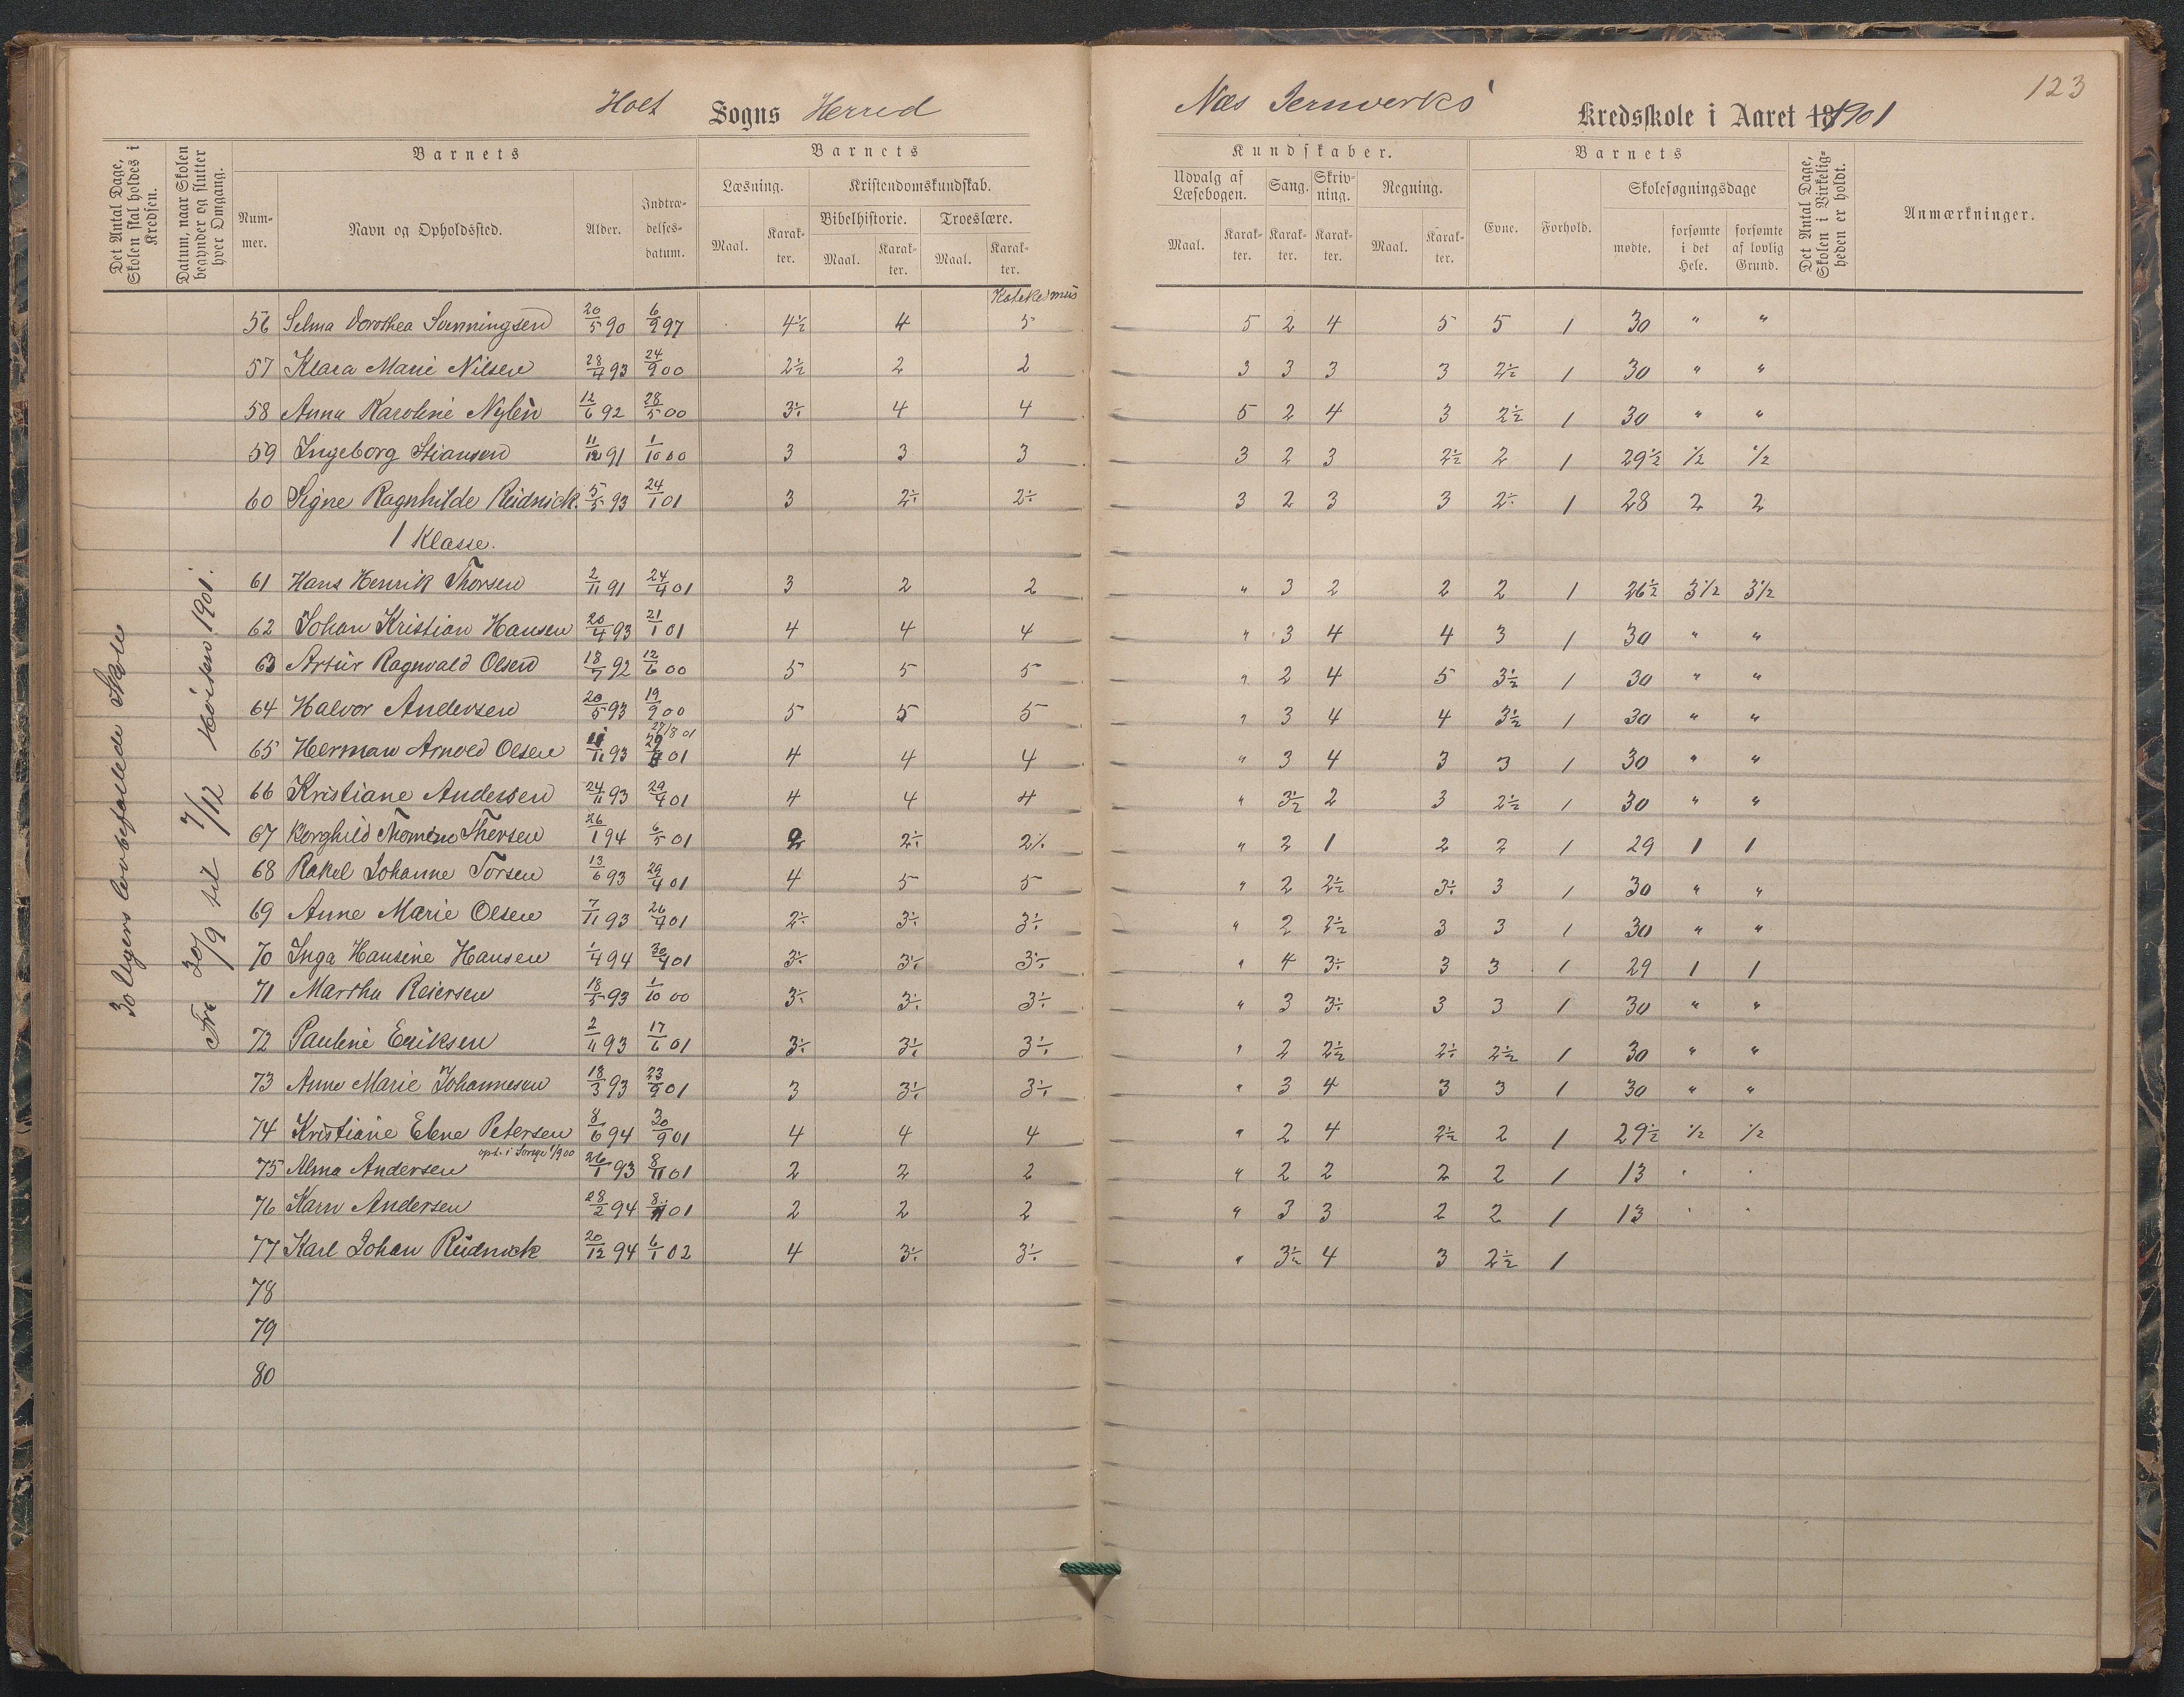 Holt Sogns Herred
Næs Jernverks Kredsskole i Aaret 1901
123
Det Antal Dage, Skolen skal holdes i Kredsen.
Datum, naar Skolen begynder og slutter hver Omgang.
Barnets
Nummer.
Navn og Opholdssted.
Alder.
Indtrædelsesdatum.
Barnets
Læsning.
Kristendomskundskab.
Bibelhistorie.
Troeslære.
Maal. Karakter. Maal. Karakter. Maal. Karakter.
Kundskaber.
Udvalg af Læsebogen.
Sang.
Skrivning.
Regning.
Maal. Karakter. Karakter. Karakter. Maal. Karakter.
Barnets
Evne.
Forhold.
Skolesøgningsdage
mødte.
forsømte i det Hele.
forsømte af lovlig Grund.
Det Antal Dage, Skolen i Virkeligheden er holdt.
Anmærkninger.
30 lovbefalede Skole
Fra 30/9 til 7/12 Høisten 1901.
Katekismus
56 Selma Dorothea Sunningsen 20/5 90 6/9 97 4½ 4 5 5 2 4 5 5 1 30 " "
57 Klara Marie Nilsen 28/4 93 24/9 00 2½ 2 2 3 3 3 3 2½ 1 30 " "
58 Anna Karoline Nylén 12/6 92 28/5 00 3÷ 4 4 5 2 4 3 2½ 1 30 " "
59 Ingeborg Stiansen 11/12 91 1/10 00 3 3 3 3 2 3 2½ 2 1 29½ ½ ½
60 Signe Ragnhilde Reidnick 5/5 93 24/1 01 3 2÷ 2÷ 3 2 3 3 2÷ 1 28 2 2
1 Klasse.
61 Hans Henrik Thorsen 2/11 91 24/4 01 3 2 2 " 3 2 2 2 1 26½ 3½ 3½
62 Johan Kristian Hansen 20/4 93 21/1 01 4 4 4 " 3 4 4 3 1 30 " "
63 Artur Ragnvald Olsen 18/7 92 12/6 00 5 5 5 " 2 4 5 3½ 1 30 " "
64 Halvor Andersen 20/5 93 19/9 00 5 5 5 " 3 4 4 3½ 1 30 " "
27/8 01
65 Herman Arnold Olsen 11/11 93 01 4 4 4 " 3 4 3 3 1 30 " "
66 Kristiane Andersen 24/11 93 29/4 01 4 4 4 " 3½ 2 3 2½ 1 30 " "
67 Borghild Thorsen 26/1 94 6/5 01 2 2÷ 2÷ " 2 1 2 2 1 29 1 1
68 Rakel Johanne Torsen 13/6 93 29/4 01 4 5 5 " 2 2½ 3÷ 3 1 30 " "
69 Anne Marie Olsen 7/11 93 26/4 01 2÷ 3÷ 3÷ " 2 2½ 3 3 1 30 " "
70 Inga Hansine Hansen 1/4 94 30/4 01 3÷ 3÷ 3÷ " 4 3÷ 3 3 1 29 1 1
71 Martha Reiersen 18/5 93 1/10 00 3÷ 3÷ 3÷ " 3 3÷ 3 3 1 30 " "
72 Pauline Eriksen 2/11 93 17/6 01 3÷ 3÷ 3÷ " 2 2½ 2÷ 2½ 1 30 " "
73 Anne Marie Johannesen 18/3 93 23/9 01 3 3÷ 3÷ " 3 4 3 3 1 30 " "
74 Kristiane Elene Petersen 8/6 94 30/9 01 4 4 4 " 2 4 2½ 2 1 29½ ½ ½
75 Alma Andersen 26/1 93 8/11 01 2 2 2 " 2 2 2 2 1 13 . .
76 Karn Andersen 28/2 94 8/11 01 2 2 2 " 3 3 2 2 1 13 . .
77 Karl Johan Reidnick 20/12 94 6/1 02 4 3÷ 3÷ " 3½ 4 3 2½ 1
78
79
80